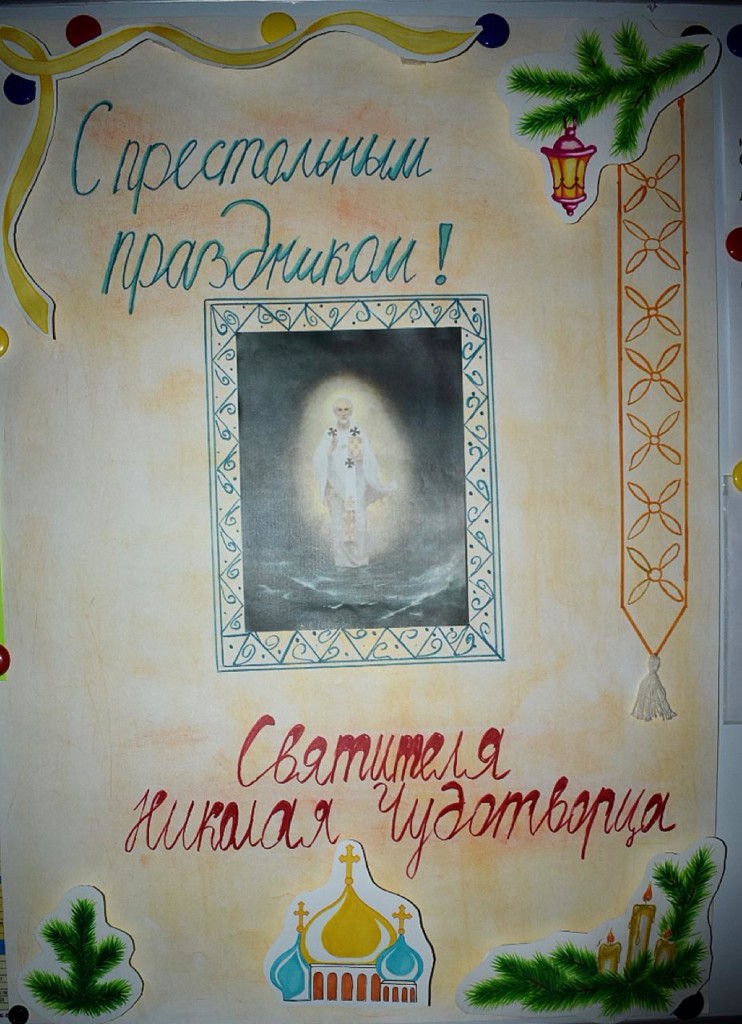 С престольным
праздником!
Святителя
Николая Чудотворца